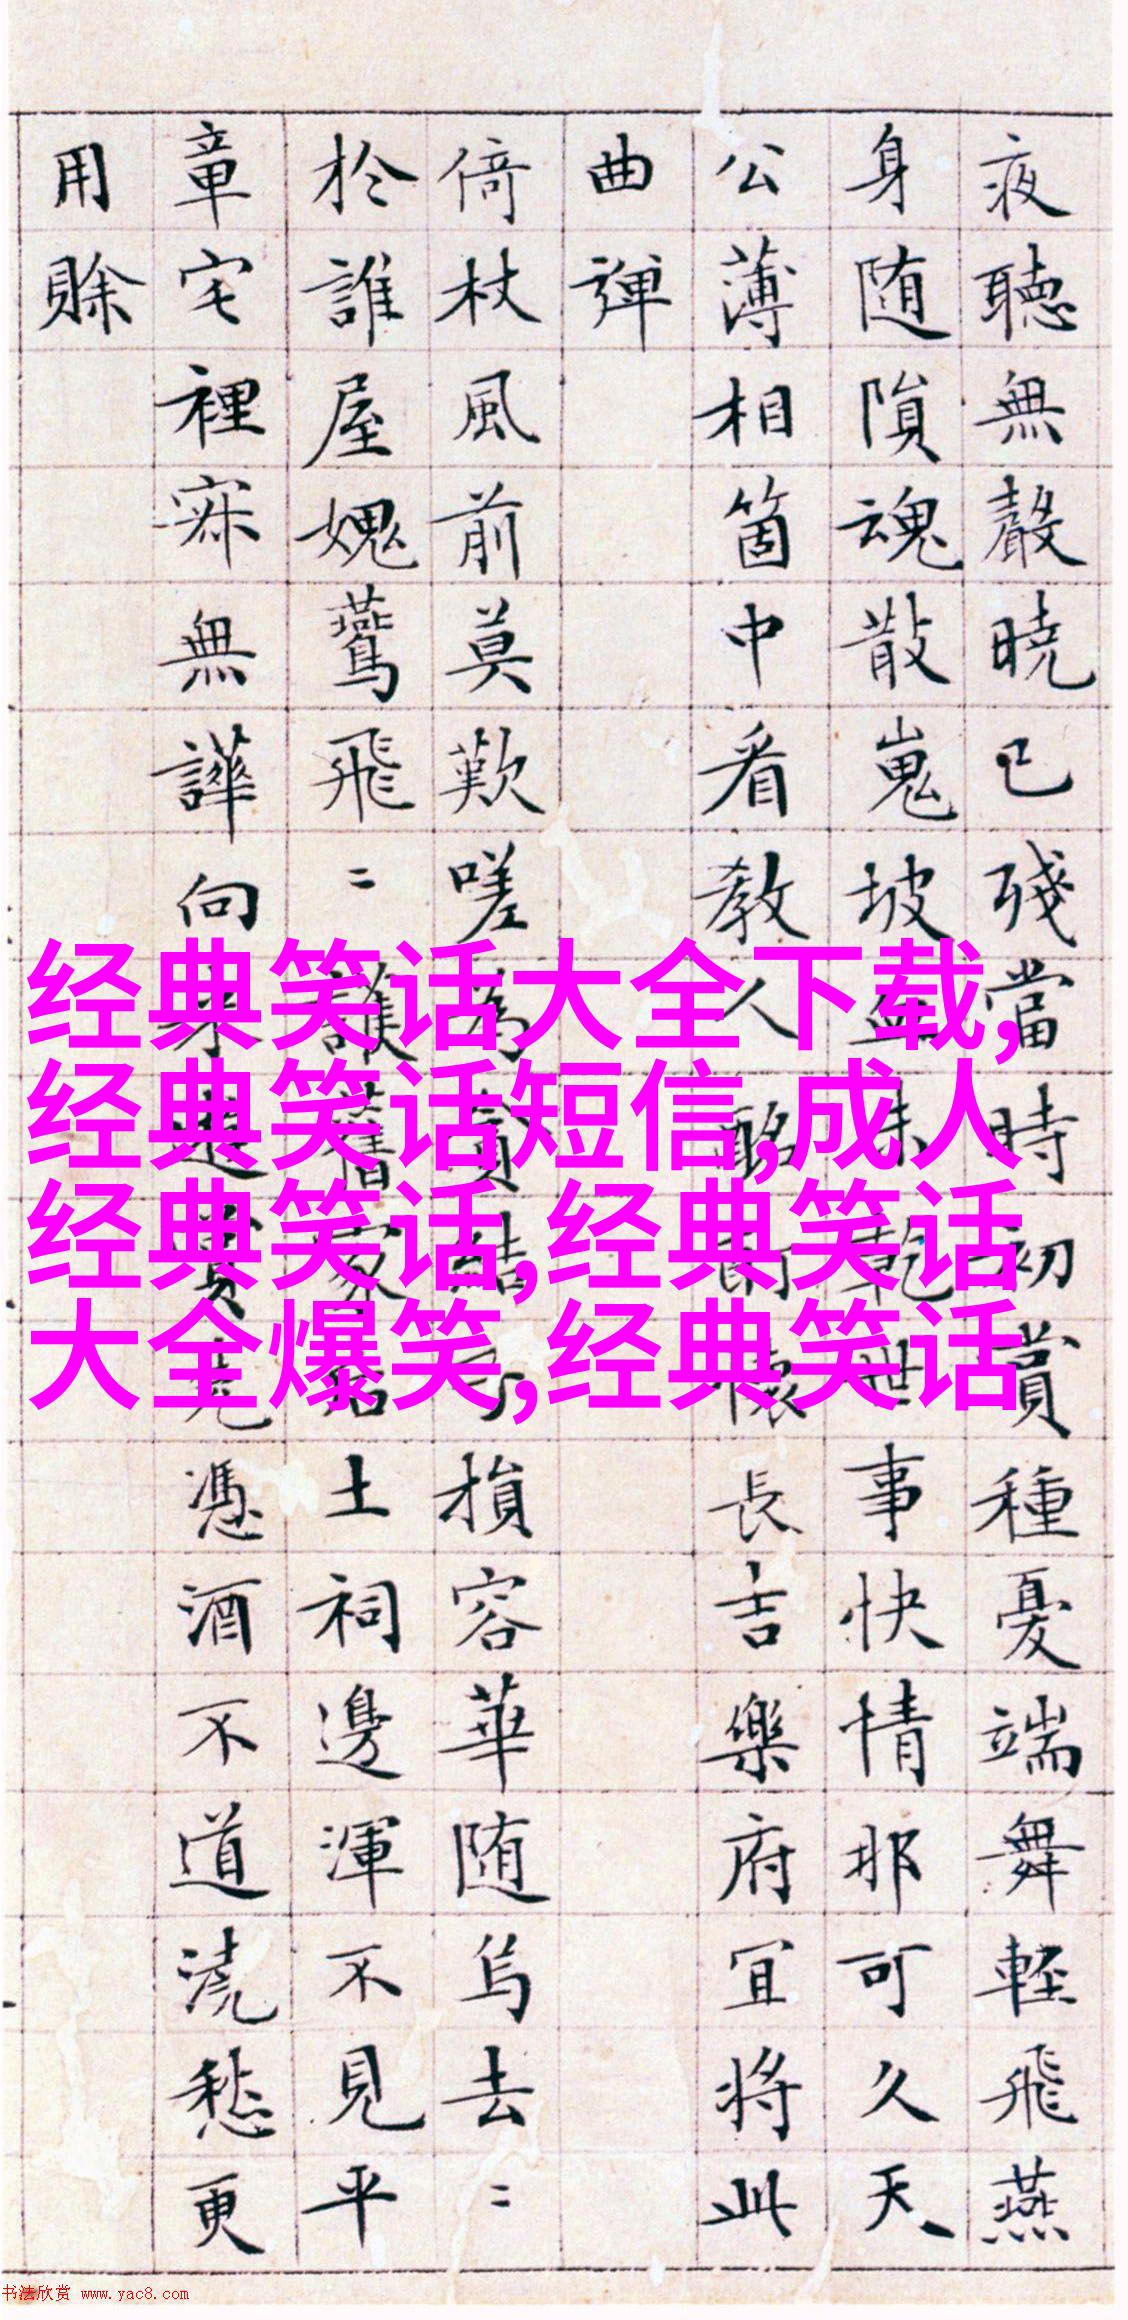 夜聽無聲曉已殘當時初賞種憂端舞輕飛燕
身随隕魂散嵬坡血未乾世事快情那可久天
公薄相箇中看教人懷長吉樂府宜將此
曲彈
倚杖風前莫歎嗟為貧結損容華随烏去〻
於誰屋媿鷰飛〻誰舊家土祠邊渾不見平
章宅裡寂無譁向來賞先憑酒不道澆愁更
用賒
经典笑话大全下载,
经典笑话短信,成人
经典笑话,经典笑话
大全爆笑,经典笑话
书法欣赏 www.yac8.com